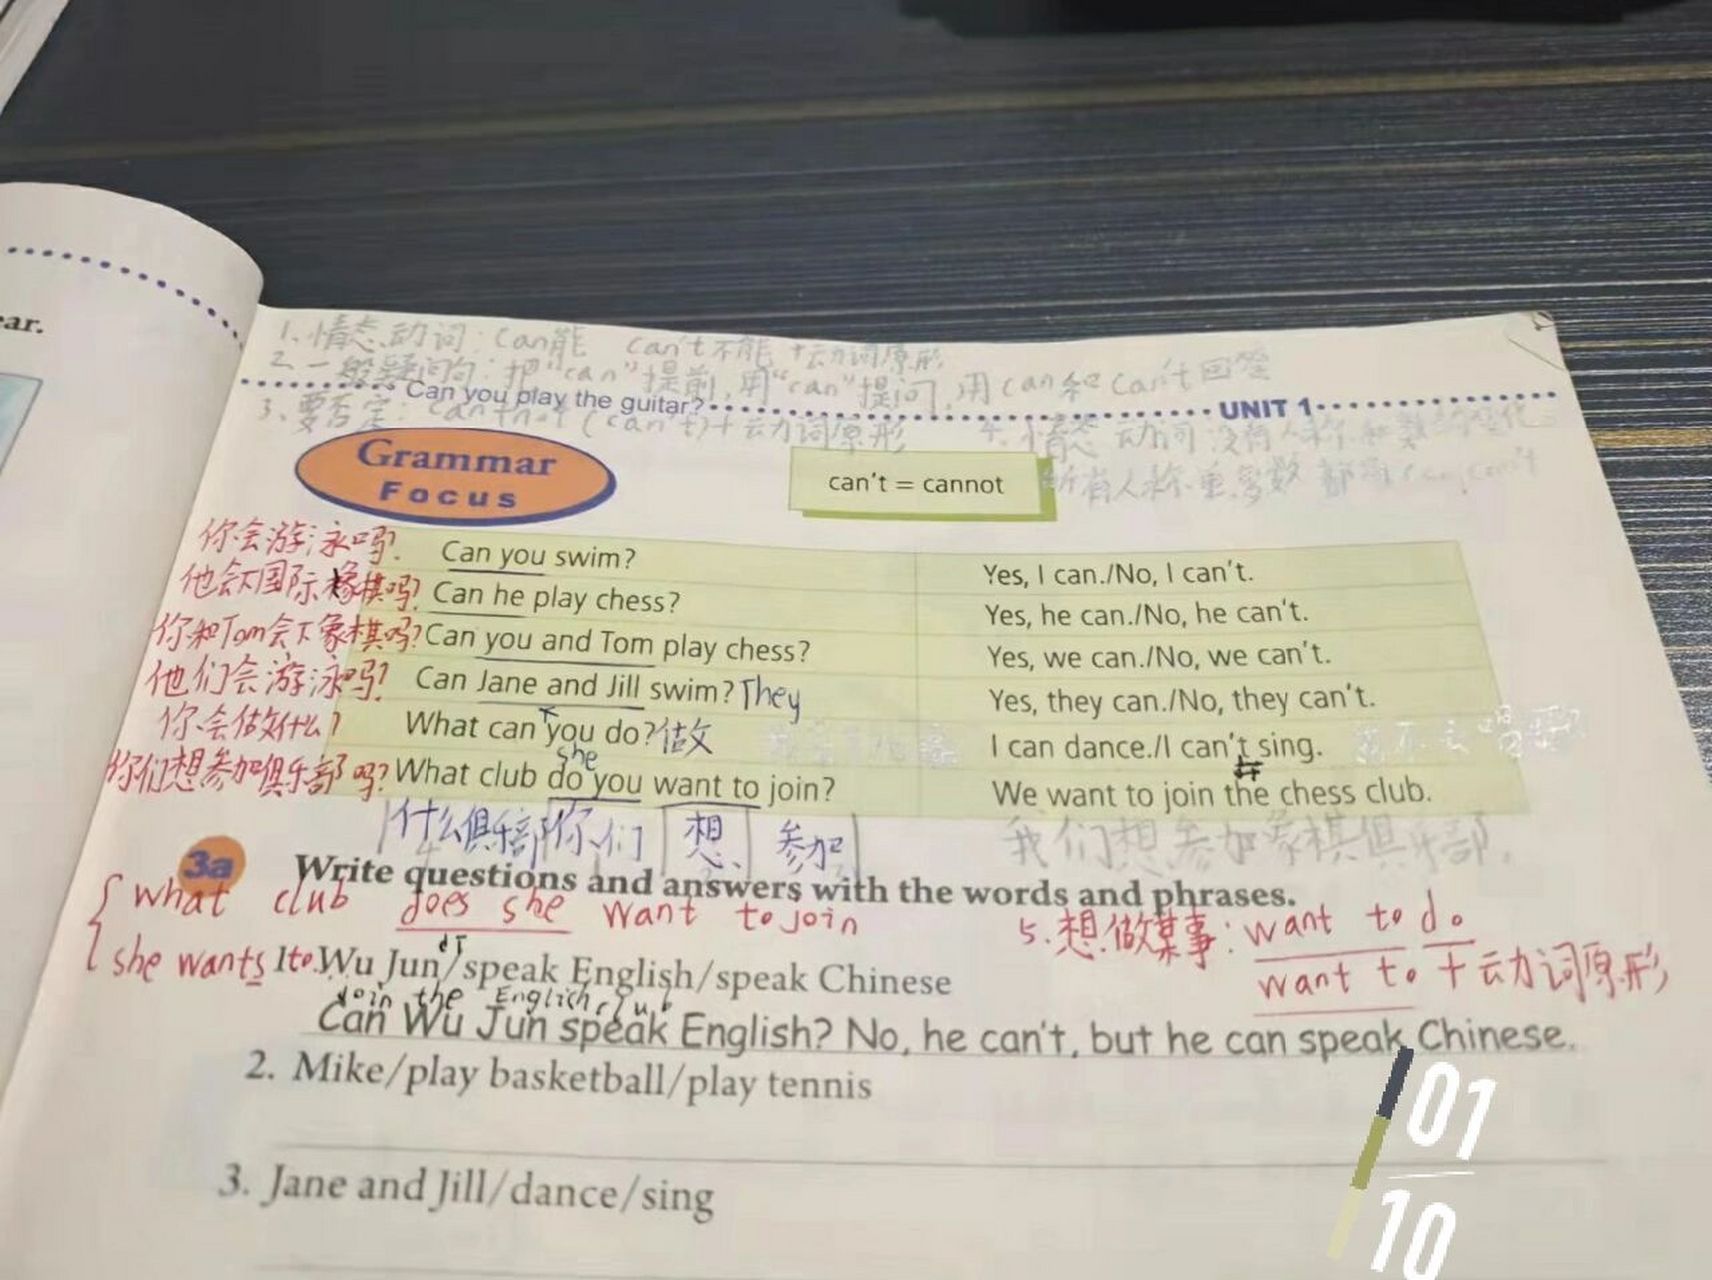 ear.
1、情态动词：can能 can't不能 +动词原形
2、一般疑问句：把"can"提前，用"can"提问，用can和can't回答
Can you play the guitar?
UNIT 1
3、要否定：can+not (can't)+动词原形
4、情态动词没有人称和数的变化
所有人称、单复数都用can,can't
Grammar
Focus
can't = cannot
你会游泳吗? Can you swim? Yes, I can./No, I can't.
他会下国际象棋吗? Can he play chess? Yes, he can./No, he can't.
你和Tom会下象棋吗? Can you and Tom play chess? Yes, we can./No, we can't.
他们会游泳吗? Can Jane and Jill swim? They Yes, they can./No, they can't.
你会做什么? What can you do? 做 I can dance./I can't sing.
she
你们想参加俱乐部吗? What club do you want to join? We want to join the chess club.
什么俱乐部 你们 想 参加 我们想参加象棋俱乐部.
3a Write questions and answers with the words and phrases.
what club does she want to join
5.想做某事: want to do
she wants to
1. Wu Jun/speak English/speak Chinese
want to + 动词原形
join the English club
Can Wu Jun speak English? No, he can't, but he can speak Chinese.
2. Mike/play basketball/play tennis
3. Jane and Jill/dance/sing
01
10